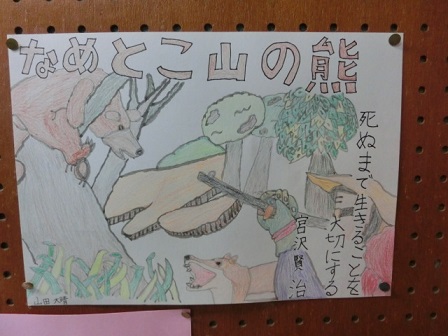 なめとこ山の熊
死ぬまで生きることを
大切にする
宮沢賢治
山田大晴